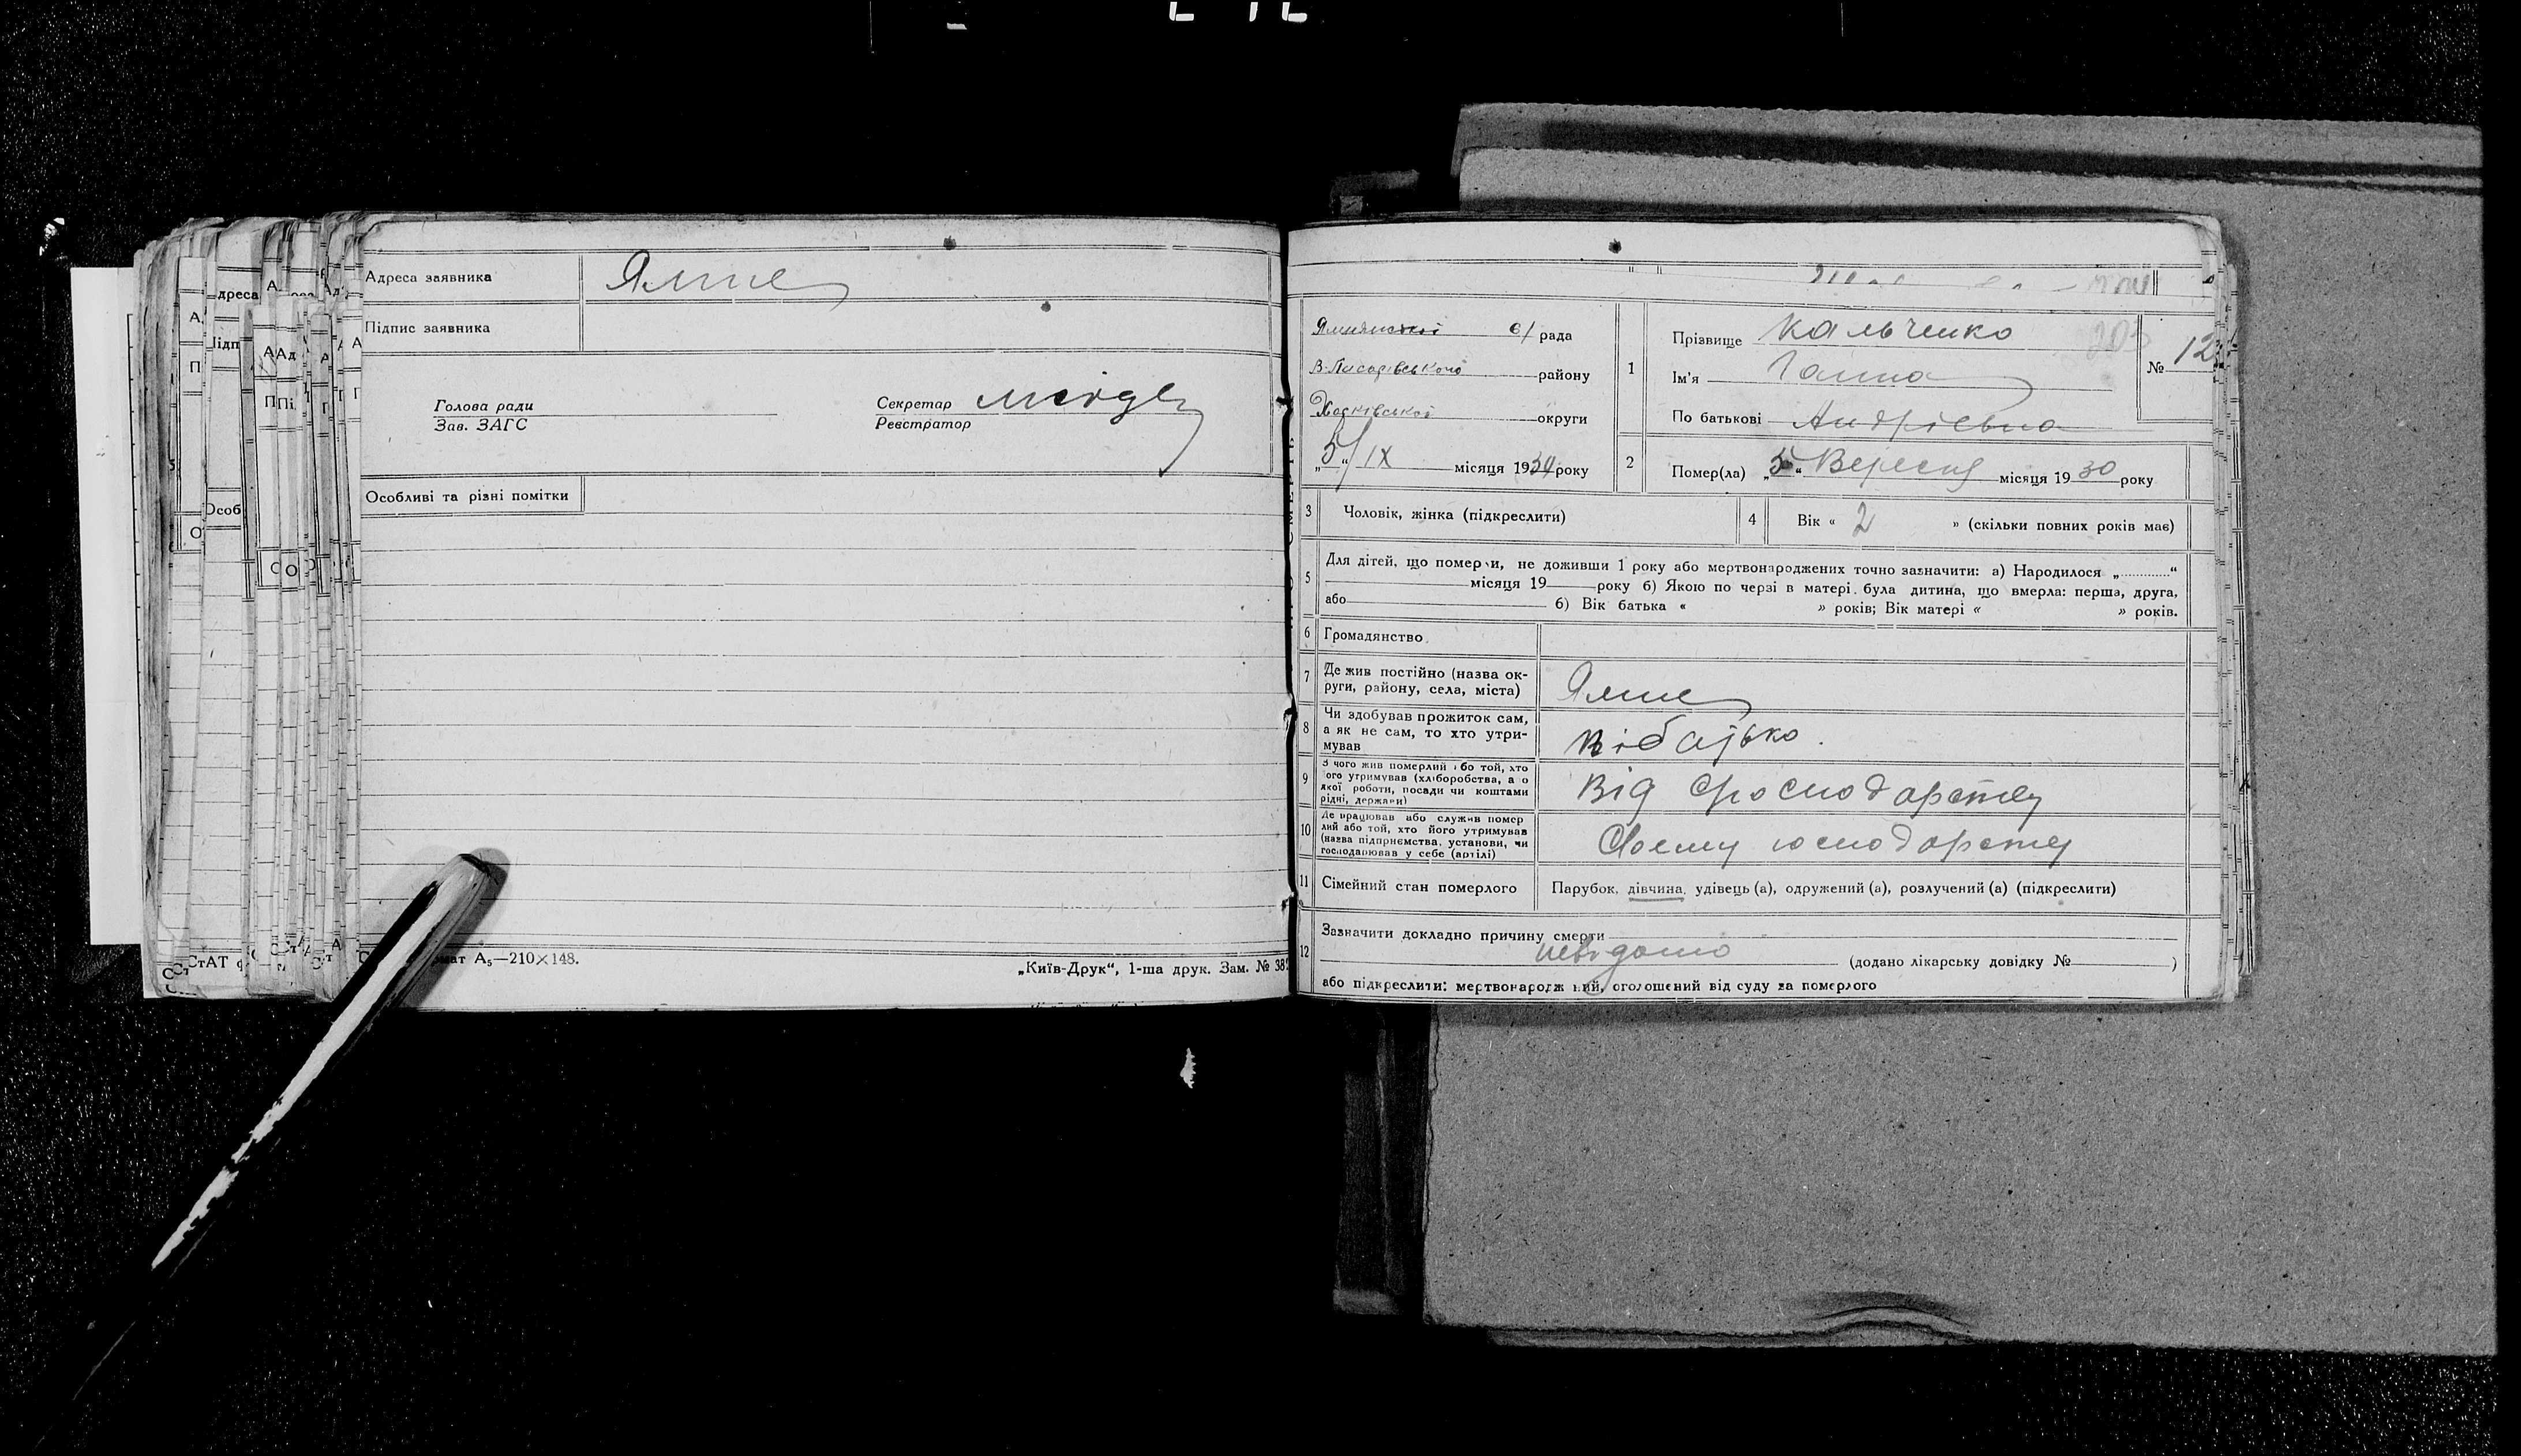 Адреса заявника Ямне
Підпис заявника
Голова ради
Зав. ЗАГС
Секретар
Реєстратор
Особливі та різні помітки
А₅—210×148.
„Київ-Друк“, 1-ша друк. Зам. № 38
рада
району
Харківської округи
„5“ IX місяця 1930 року
1 Прізвище Кальченко
Ім'я Ганна
По батькові Андріевна
№ 12
2 Помер(ла) „5“ Вересня місяця 1930 року
3 Чоловік, жінка (підкреслити)
4 Вік « 2 » (скільки повних років має)
5 Для дітей, що померли, не доживши 1 року або мертвонароджених точно зазначити: а) Народилося „............“
місяця 19 року б) Якою по черзі в матері була дитина, що вмерла: перша, друга,
або б) Вік батька « » років; Вік матері « » років.
6 Громадянство
7 Де жив постійно (назва ок-
руги, району, села, міста) Ямне
8 Чи здобував прожиток сам,
а як не сам, то хто утри-
мував батько.
9 З чого жив померлий або той, хто
його утримував (хліборобства, а о
якої роботи, посади чи коштами
рідні, держави) Від Господарству
10 Де працював або служив помер
лий або той, хто його утримував
(назва підприємства, установи, чи
господарював у себе (артілі) Своему господарству
11 Сімейний стан померлого Парубок, дівчина, удівець (а), одружений (а), розлучений (а) (підкреслити)
12 Зазначити докладно причину смерти
невідомо (додано лікарську довідку № )
або підкреслити: мертвонароджений, оголошений від суду за померлого